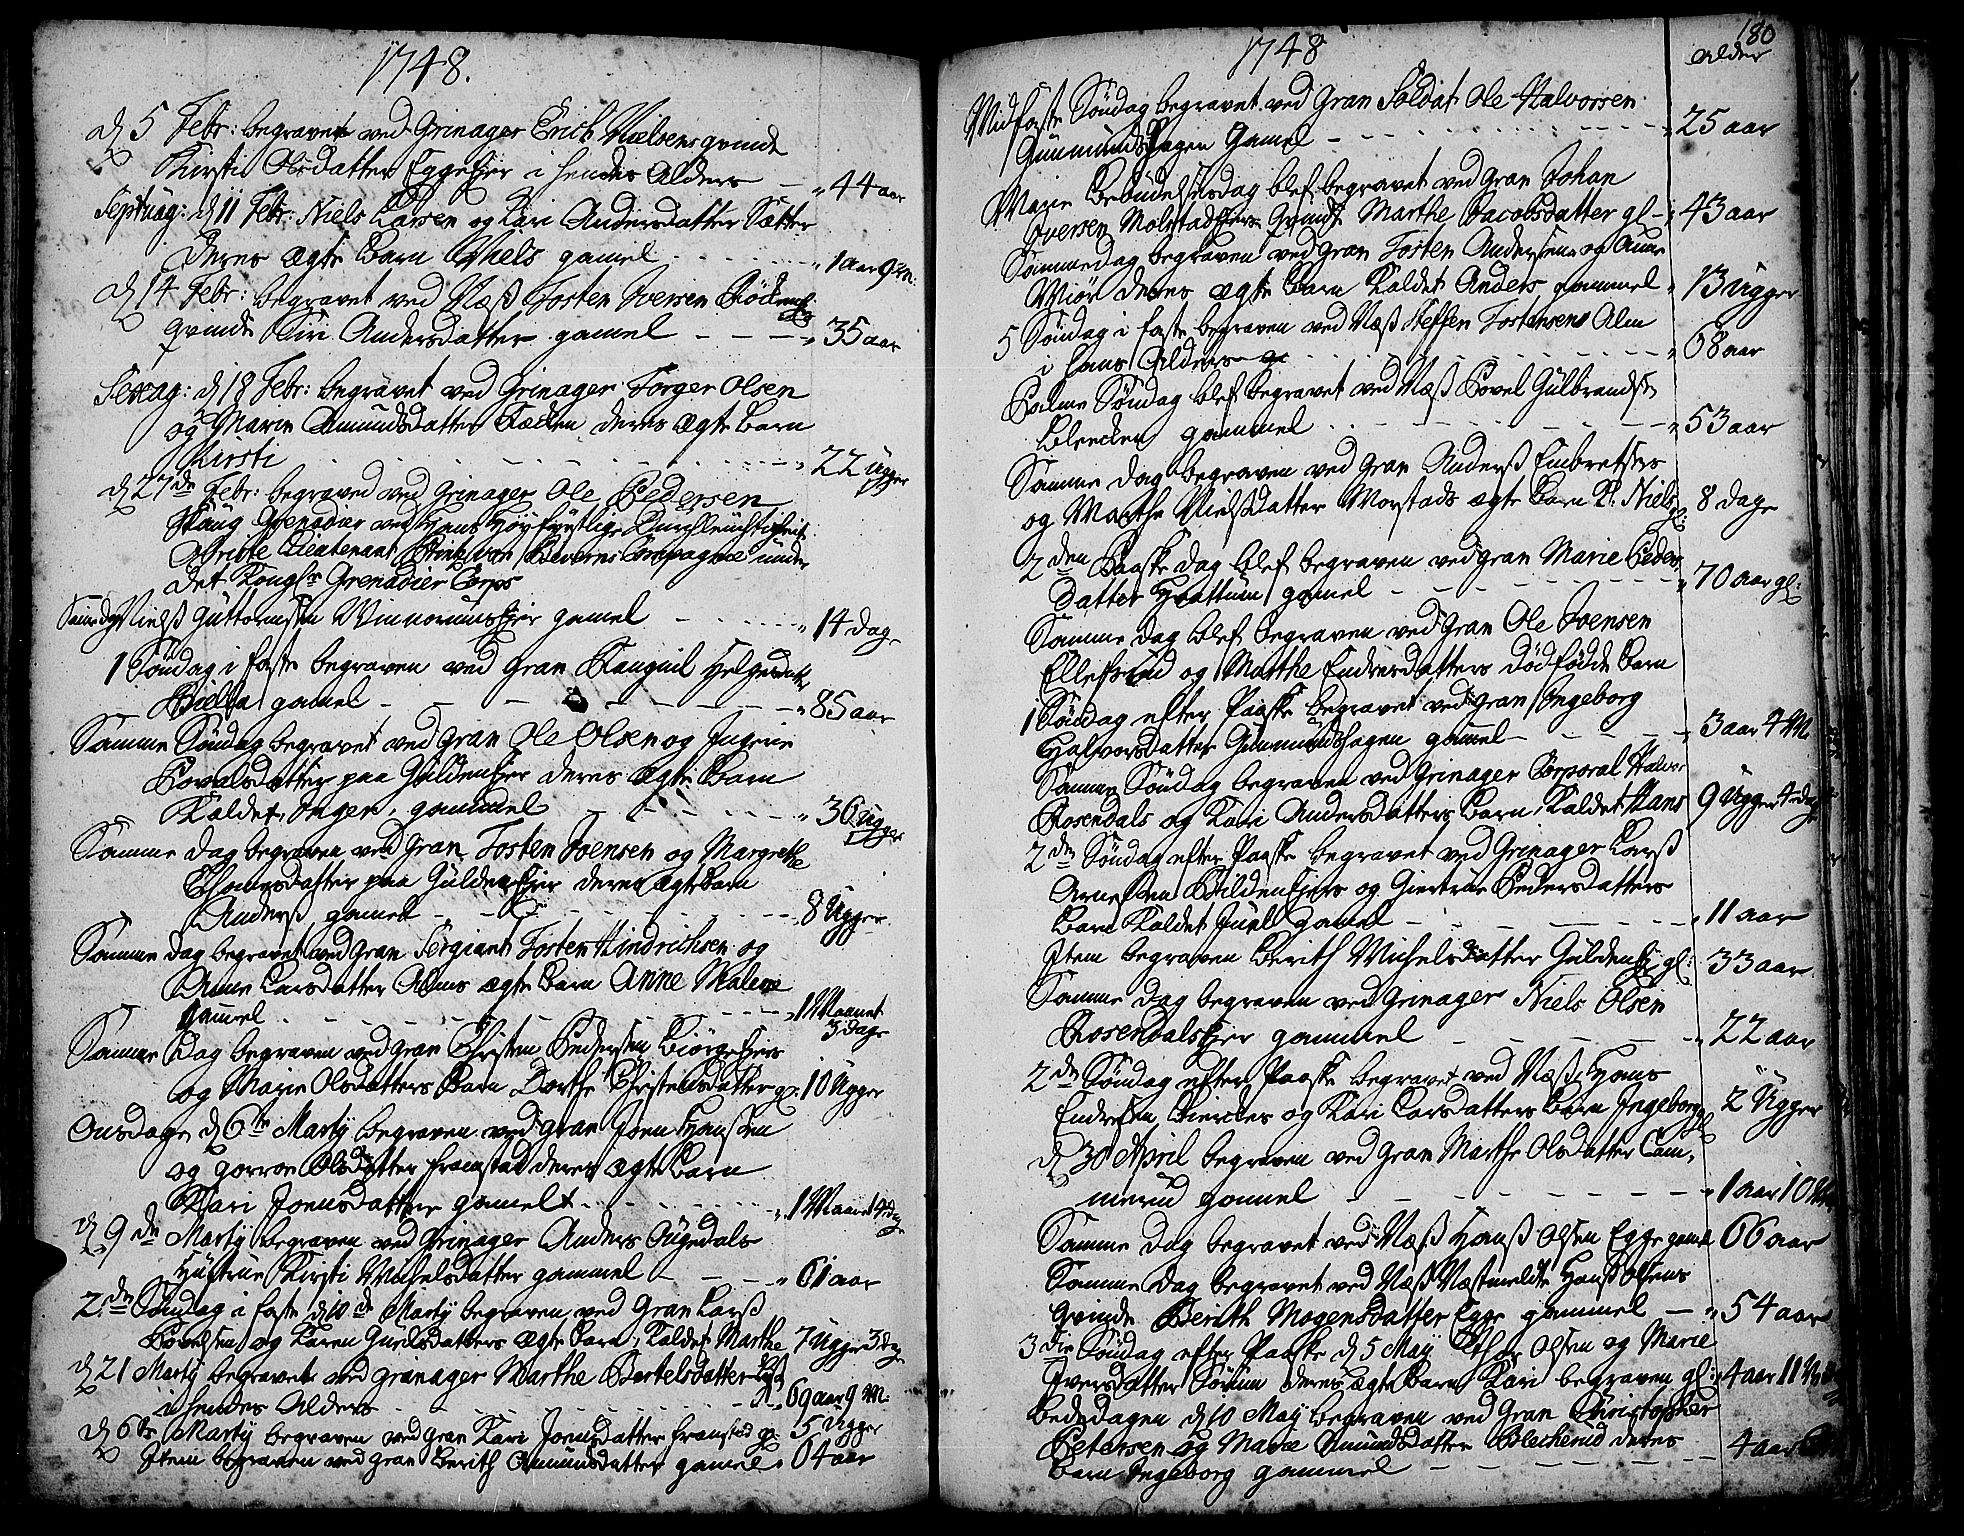 1748.
d 5 Febr: begravet ved Grinager Erich Nielsens qvinde
Kirsti Olsdatter Eggeejer i hendes Alders - 44 aar
Septuag: d 11 Febr: Niels Larsen og Kari Andersdatter Sætter
deres ægte Barn Niels gamel 1 aar 9 m.
d 14 Febr: begravet ved Næß Tosten Iversen
qvinde Siri Andersdatter gamel - - - 35 aar
Sexag: d 18 Febr: begravet ved Grinager Torger Olsen
og Marie Amundsdatter deres ægte Barn
Kirsti 22 Ugger
d 27de Febr: begraved ved Grinager Ole Pedersen
Haug Grenadeer ved Hans Høyfyrstlige Durchleuchtigheit
Obriste Lieutenant von Beverns Compagnie under
det Kongl: Grenadier Corps
Same dag Nielß Guttormsen gamel 14 dage
1 Søndag i faste begraven ved Gran Ranguil Helgesdatter
Biella gamel - - - 85 aar
Samme Søndag begravet ved Gran Ole Olsen og Ingerie
Povelsdatter paa Guldenejer deres ægte Barn
Kaldet Inger, gammel 36 Ugger
Samme dag begraven ved Gran Tosten Svensen og Margrethe
Thomesdatter paa Guldenejer deres ægte Barn
Anderß gamel - - 8 Ugger
Samme dag begravet ved Gran Sergiant Tosten Hindrichsen og
Anne Larsdatter Alms ægte Barn Anne Malene
gamel 1 Maanet 3 dage
Samme dag begraven ved Gran Christen Pedersen
og Marie Olsdatters Barn Dorthe Christensdatter gl: 10 Ugger
Onsdagen d 6te Martÿ begraven ved Gran Joen Hansen
og Olsdatter Framstad deres ægte Barn
Kari Joensdatter gamel 1 Maanet 14 dage
d 9de Martÿ begraven ved Grinager Anders Augedals
Hustrue Kirsti Michelsdatter gammel - - - 61 aar
2den Søndag i faste d 10de Martÿ begraven ved Gran Larß
Povelsen og Karen ægte Barn, Kaldet Marthe 7 Ugger 3 dage
d 21 Martÿ begravet ved Granager Marthe Bertelsdatter
i hendes Alders 69 aar 9 M.
d 6te Martÿ begraven ved Gran Kari Joensdatter Framstad gl: 5 Ugger
Item begraven ved Gran Berith Amundsdatter gamel 64 aar
1748
180
Alder
Midfaste Søndag begravet ved Gran Soldat Ole Halvorsen
Gunmundshagen Gamel - - - 25 aar
Marie Bebudelsesdag blef begravet ved Gran Johan
Iversen Molstads Qvinde Marthe Jacobsdatter gl - 43 aar
Sammedag begraven ved Gran Tosten Andersen og Anne
deres ægte Barn Kaldet Anders gammel 13 Ugger
5 Søndag i faste begraven ved Næß Steffen Tostensen Alm
i hans Alders 68 aar
Palme Søndag blef begravet ved Næß Povel Gulbrandsen
Bleecken gammel 53 aar
Samme dag begraven ved Gran Anderß Embretsens
og Marthe Nielsdatter Morstads ægte Barn K. Niels gl: 8 dage
2den Paaske dag blef begraven ved Gran Marie Peders
datter Hvattum gamel - - - 70 aar gl:
Samme dag blef begraven ved Gran Ole Svensen
Ellefsrud og Marthe Endresdatters dødfødde Barn
1 Søndag efter Paaske begravet ved Gran Ingeborg
Halvorsdatter Gunmundshagen gamel - - - 3 aar 4 M
Samme Søndag begraven ved Grinager Corporal Halvor
Rosendals og Kari Andersdatters Barn Kaldet Hans 9 Ugger 4 dage
2den Søndag efter Paaske begravet ved Grinager Larß
Arnesen Kildenejers og Giertrue Pedersdatters
Barn Kaldet Juel gamel - - - 11 aar
Item begraven Berith Michelsdatter Guldenejer gl: 33 aar
Samme dag begraven ved Grinager Niels Olsen
Rosendalsejer gammel - - - 22 aar
2den Søndag efter Paaske begravet ved Næß Hans
Endresen og Kari Larsdatters Barn Ingeborg gl 2 Ugger
d 30 April begraven ved Gran Marthe Olsdatter Cam,
merud gammel - - - 1 aar 10 M
Samme dag begravet ved Næß Hanß Olsen Egge gamel 66 aar
Samme dag begravet ved Næß Hanß Olsens
qvinde Berith Mogensdatter Egge gammel - 54 aar
3die Søndag efter Paaske d 5 Maÿ Olsen og Marie
Iversdatter deres ægte Barn Kari begraven gl: 4 aar 11 M
Bededagen d 10 Maÿ begraven ved Gran Christopher
Petersen og Marie Amundsdatter Blecherud deres
Barn Ingeborg gammel - - - 4 aar